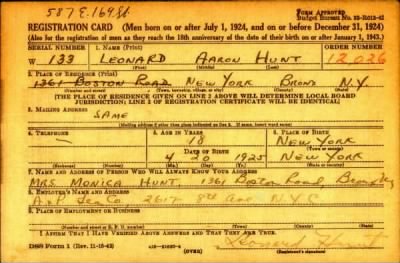 587 E. 169 St.
FORM APPROVED
Budget Bureau No. 33-R012-42
REGISTRATION CARD—(Men born on or after July 1, 1924, and on or before December 31, 1924)
(Also for the registration of men as they reach the 18th anniversary of the date of their birth on or after January 1, 1943.)
SERIAL NUMBER 1. NAME (Print) ORDER NUMBER
W 133 LEONARD AARON HUNT 12,026
(First) (Middle) (Last)
2. PLACE OF RESIDENCE (Print)
1361 BOSTON ROAD NEW YORK BRONX N.Y.
(Number and street) (Town, township, village, or city) (County) (State)
(THE PLACE OF RESIDENCE GIVEN ON LINE 2 ABOVE WILL DETERMINE LOCAL BOARD
JURISDICTION; LINE 2 OF REGISTRATION CERTIFICATE WILL BE IDENTICAL)
3. MAILING ADDRESS
SAME
(Mailing address if other than place indicated on line 2. If same, insert word same)
4. TELEPHONE 5. AGE IN YEARS 6. PLACE OF BIRTH
18 NEW YORK
DATE OF BIRTH (Town or county)
4 20 1925 NEW YORK
(Exchange) (Number) (Mo.) (Day) (Yr.) (State or country)
7. NAME AND ADDRESS OF PERSON WHO WILL ALWAYS KNOW YOUR ADDRESS
MRS. MONICA HUNT, 1361 Boston Road, Bronx NY
8. EMPLOYER'S NAME AND ADDRESS
A & P Tea Co, 2617 8th Ave, N.Y.C.
9. PLACE OF EMPLOYMENT OR BUSINESS
(Number and street or R. F. D. number) (Town) (County) (State)
I AFFIRM THAT I HAVE VERIFIED ABOVE ANSWERS AND THAT THEY ARE TRUE.
DSS Form 1 (Rev. 11-16-42) (OVER) Leonard Hunt
(Registrant's signature)